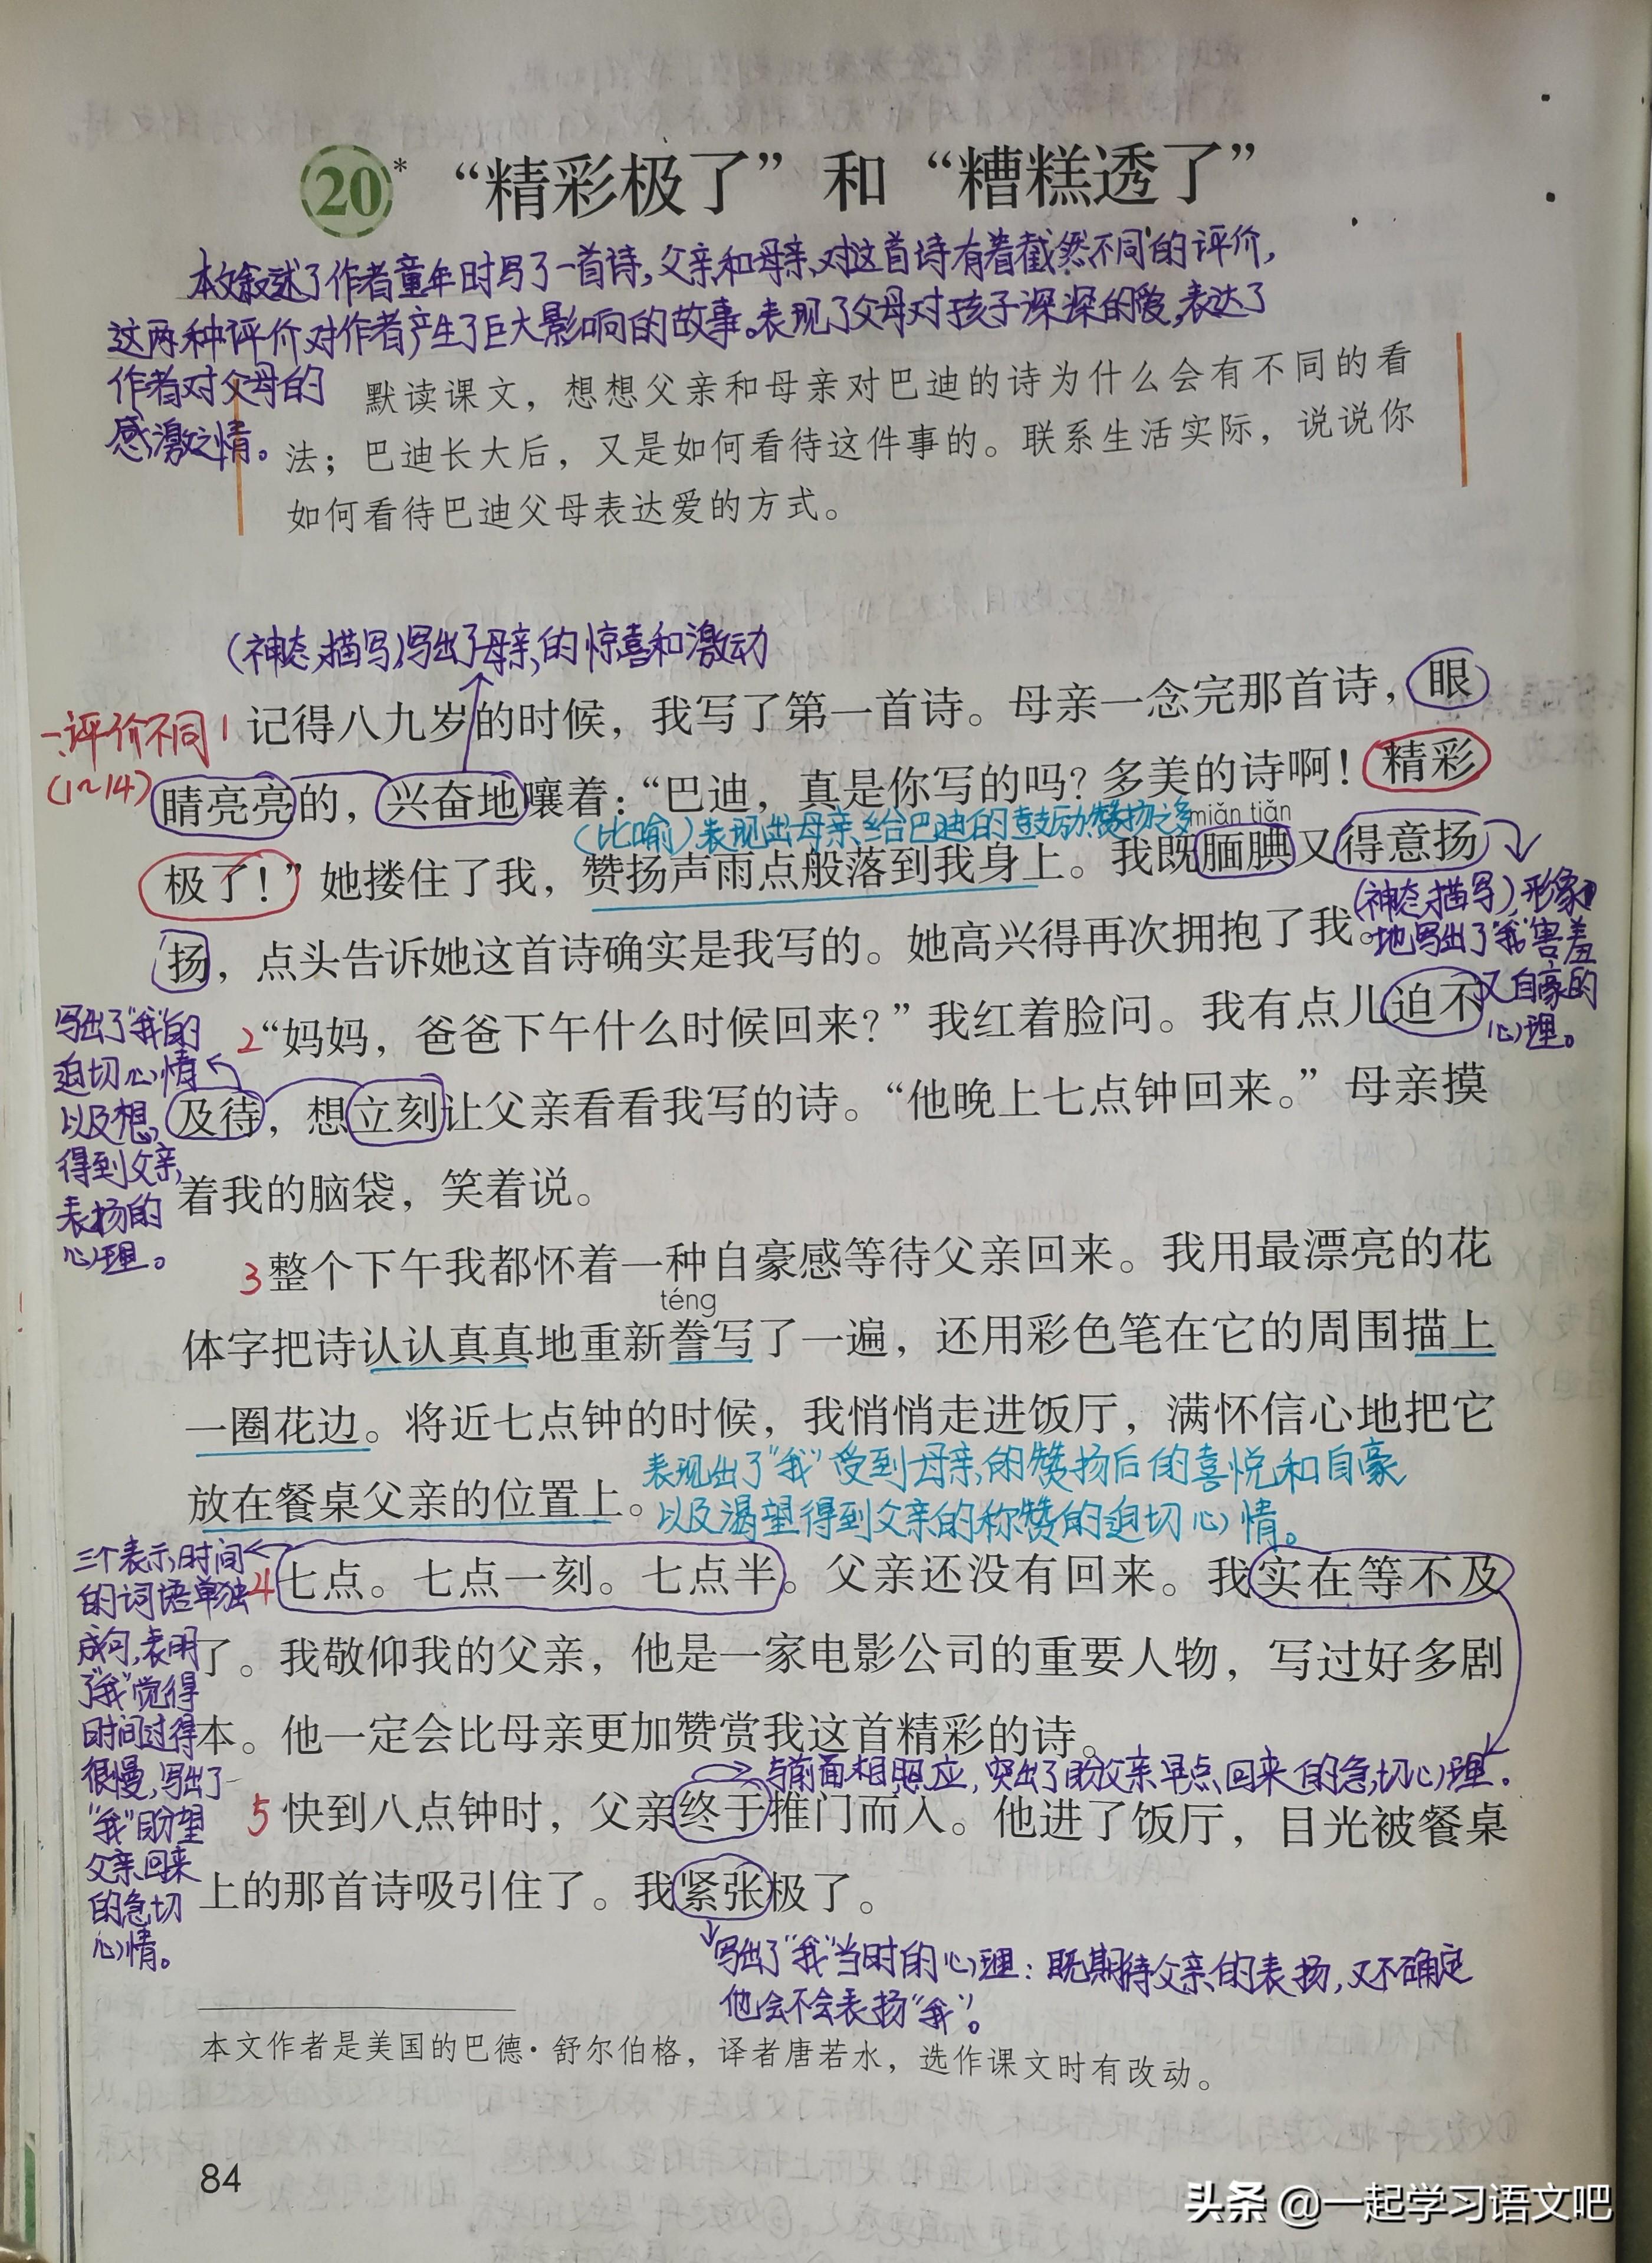 20* “精彩极了”和“糟糕透了”
本文叙述了作者童年时写了一首诗,父亲和母亲对这首诗有着截然不同的评价,
这两种评价对作者产生了巨大影响的故事。表现了父母对孩子深深的爱,表达了
作者对父母的
感激之情。
默读课文，想想父亲和母亲对巴迪的诗为什么会有不同的看
法；巴迪长大后，又是如何看待这件事的。联系生活实际，说说你
如何看待巴迪父母表达爱的方式。
(神态描写)写出了母亲的惊喜和激动
一、评价不同
(1~14)
1 记得八九岁的时候，我写了第一首诗。母亲一念完那首诗，眼
睛亮亮的，兴奋地嚷着：“巴迪，真是你写的吗？多美的诗啊！精彩
(比喻)表现出母亲给巴迪的鼓励赞扬之多
miǎn tiǎn
极了！”她搂住了我，赞扬声雨点般落到我身上。我既腼腆又得意扬
(神态描写)形象
地写出了“我”害羞
又自豪的
心理。
扬，点头告诉她这首诗确实是我写的。她高兴得再次拥抱了我。
写出了“我”的
迫切心情
以及想
得到父亲
表扬的
心理。
2 “妈妈，爸爸下午什么时候回来？”我红着脸问。我有点儿迫不
及待，想立刻让父亲看看我写的诗。“他晚上七点钟回来。”母亲摸
着我的脑袋，笑着说。
3 整个下午我都怀着一种自豪感等待父亲回来。我用最漂亮的花
téng
体字把诗认认真真地重新誊写了一遍，还用彩色笔在它的周围描上
一圈花边。将近七点钟的时候，我悄悄走进饭厅，满怀信心地把它
放在餐桌父亲的位置上。
表现出了“我”受到母亲的赞扬后的喜悦和自豪
以及渴望得到父亲的称赞的迫切心情。
三个表示时间
的词语单独
成句,表明
了“我”觉得
时间过得
很慢,写出了
“我”盼望
父亲回来
的急切
心情。
4 七点。七点一刻。七点半。父亲还没有回来。我实在等不及
了。我敬仰我的父亲，他是一家电影公司的重要人物，写过好多剧
本。他一定会比母亲更加赞赏我这首精彩的诗。
与前面相照应,突出了盼父亲早点回来的急切心理。
5 快到八点钟时，父亲终于推门而入。他进了饭厅，目光被餐桌
上的那首诗吸引住了。我紧张极了。
写出了“我”当时的心理:既期待父亲的表扬,又不确定
他会不会表扬“我”。
本文作者是美国的巴德·舒尔伯格，译者唐若水，选作课文时有改动。
84
头条 @一起学习语文吧